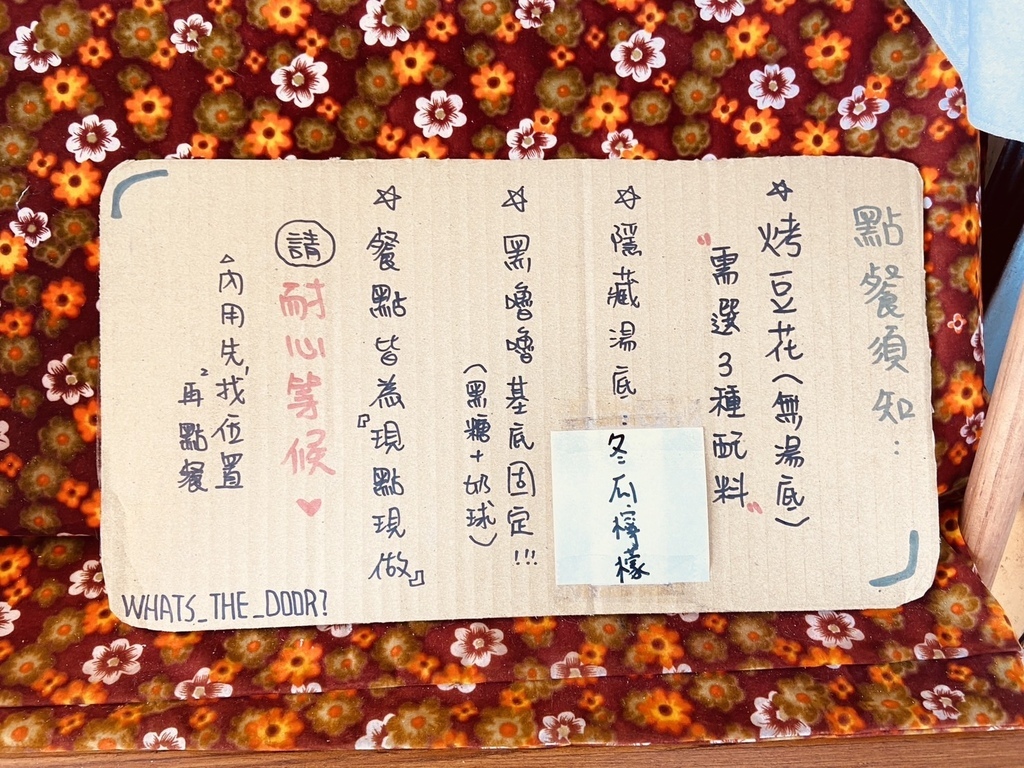 點餐須知：
☆烤豆花(無湯底)
"需選3種配料"
☆隱藏湯底：冬瓜檸檬
☆黑嚕嚕基底固定!!!
(黑糖+奶球)
☆餐點皆為『現點現做』
請耐心等候♥
△內用先¹找位置
²再點餐
WHATS_THE_DOOR?